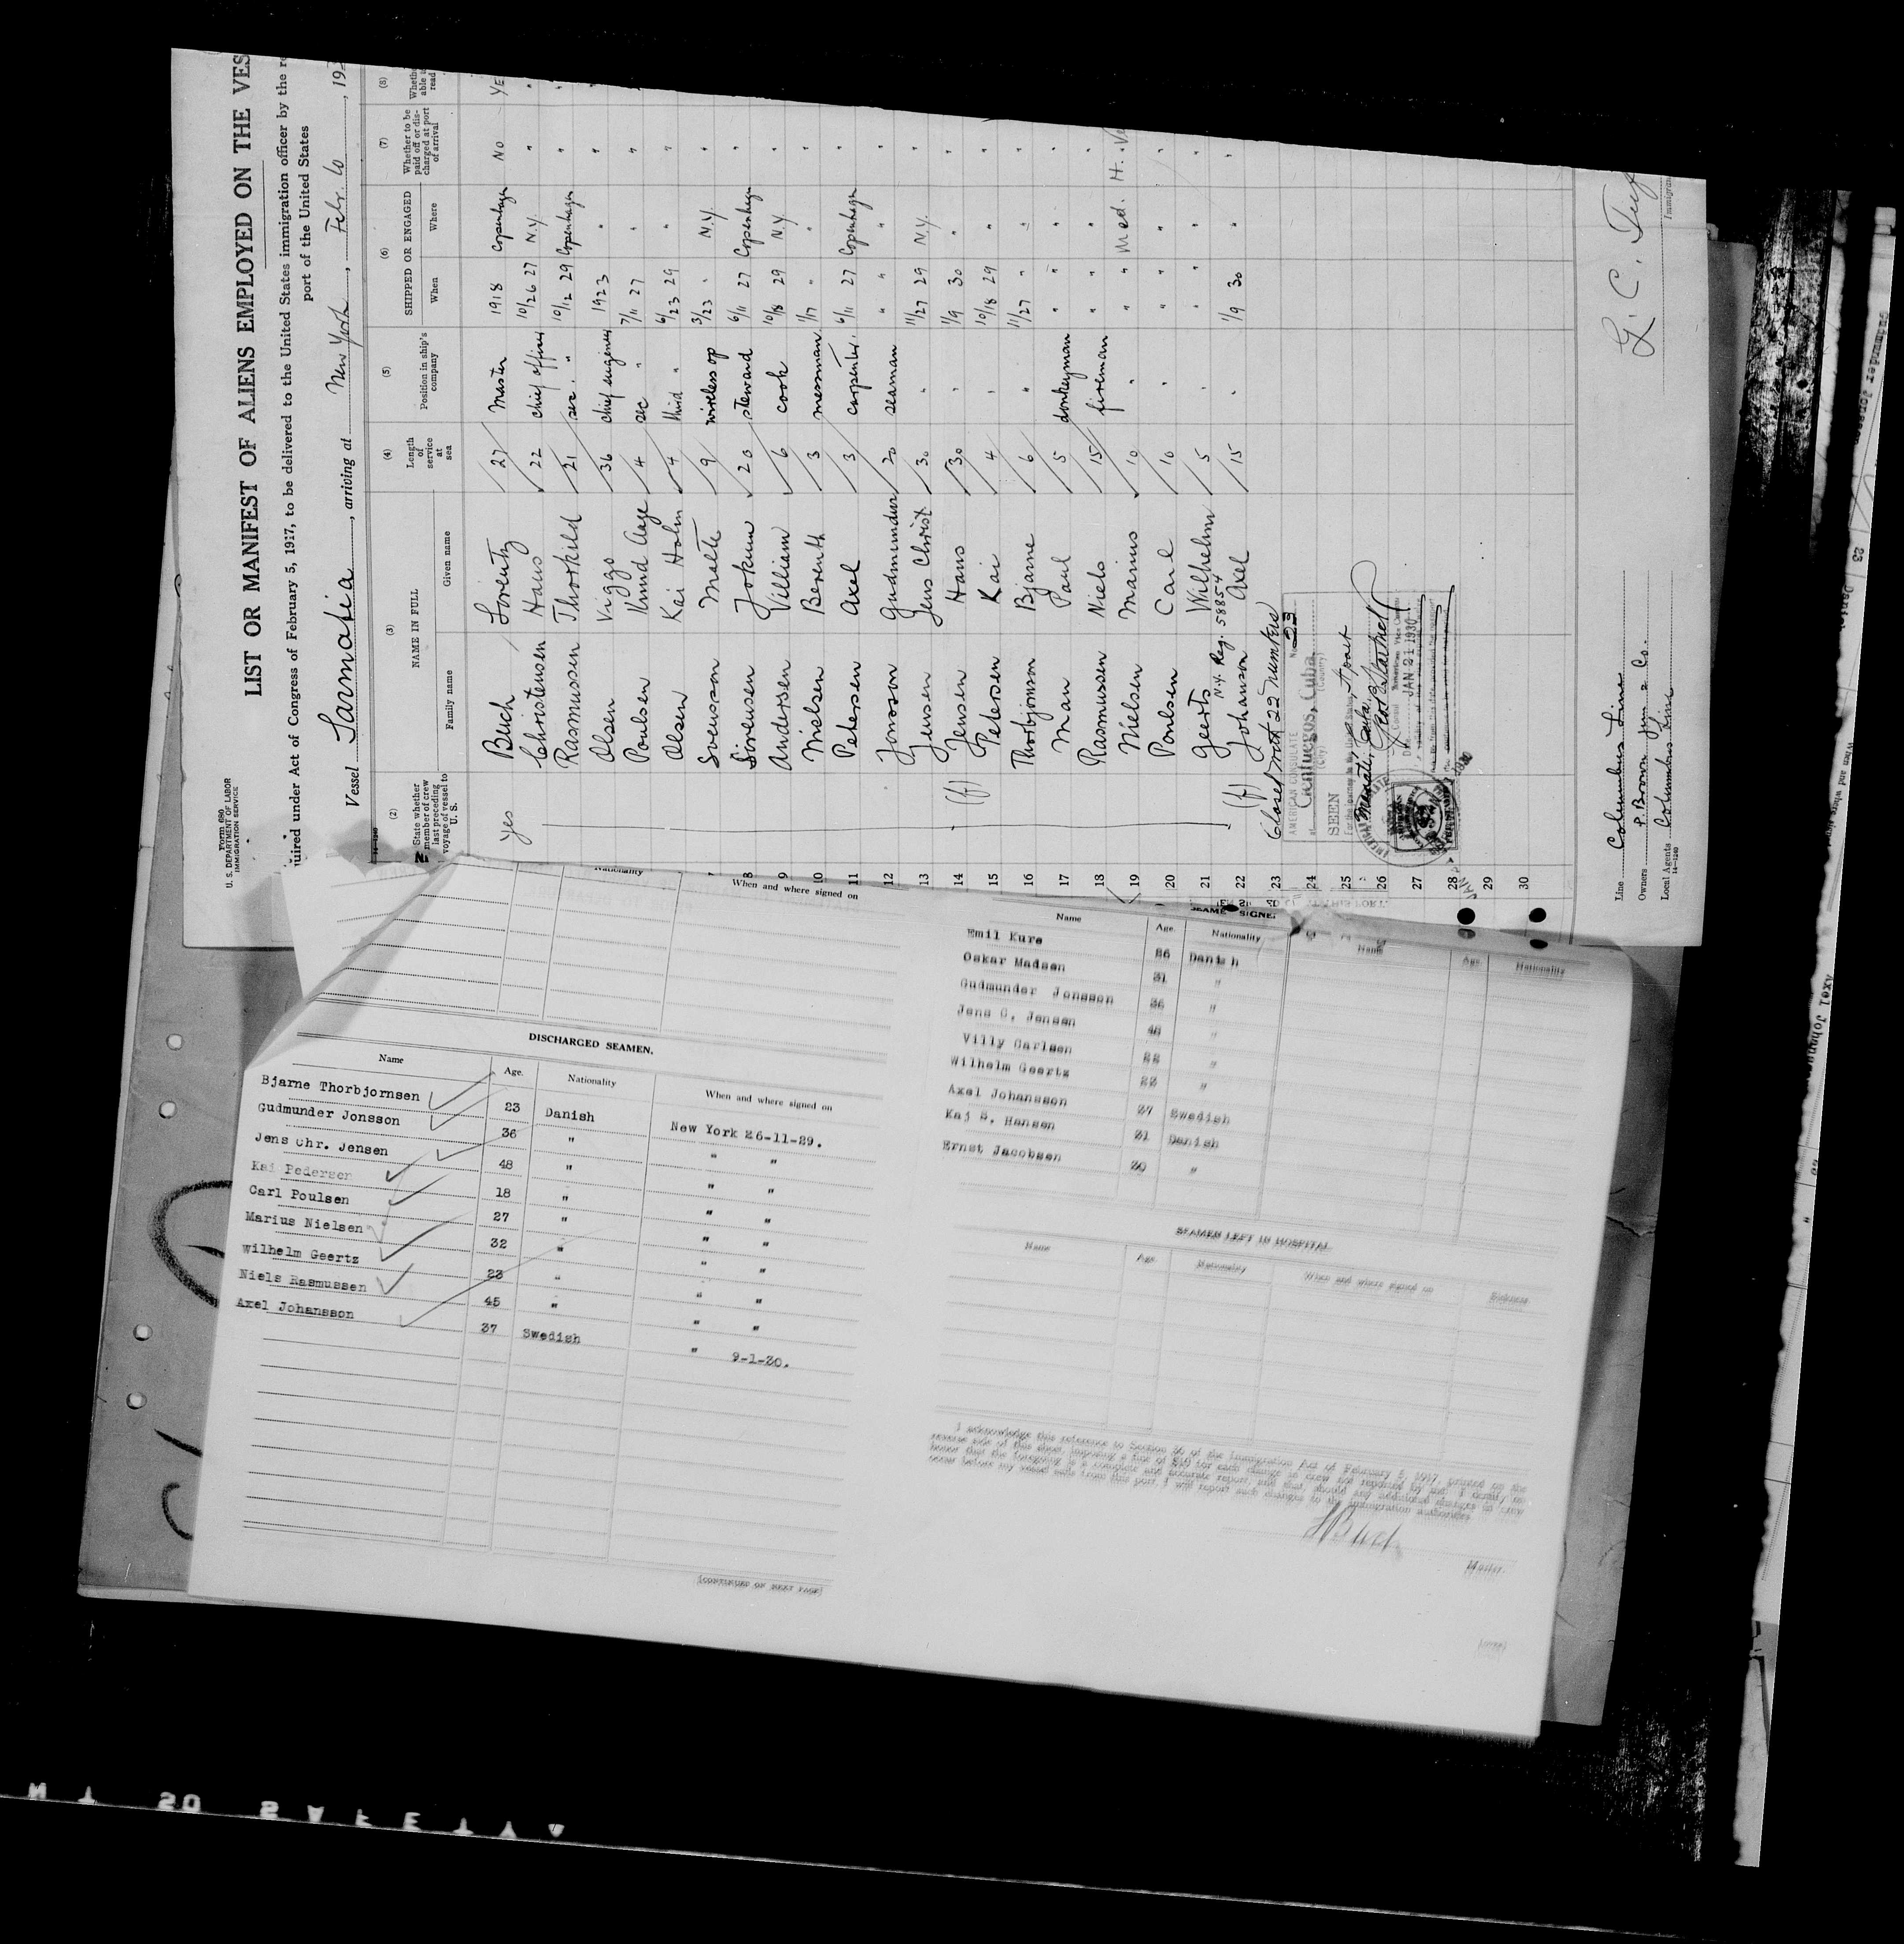 Form 680
U. S. DEPARTMENT OF LABOR
IMMIGRATION SERVICE
LIST OR MANIFEST OF ALIENS EMPLOYED ON THE VES
uired under Act of Congress of February 5, 1917, to be delivered to the United States immigration officer by the re
port of the United States
Vessel Sarmatia, arriving at New York, Febr. 10, 193
(2) (3) (4) (5) (6) (7) (8)
State whether member of crew last preceding voyage of vessel to U. S.
NAME IN FULL
Family name Given name
Length of service at sea
Position in ship's company
SHIPPED OR ENGAGED
When Where
Whether to be paid off or discharged at port of arrival
yes Buch Lorentz 27 Master 1918 Copenhagen No YE
Christensen Hans 22 chief officer 10/26 27 N.Y. "
Rasmussen Thorkild 21 sec. " 10/12 29 Copenhagen "
Olsen Viggo 36 chief engineer 1923 " "
Poulsen Knud Aage 4 sec " 7/11 27 " "
Olsen Kai Holm 4 third " 6/23 29 " "
Svensson Malte 9 wireless op 3/23 " N.Y. "
8 Sörensen Jokum 20 steward 6/11 27 Copenhagen "
9 Andersen Villiam 6 cook 10/18 29 N.Y "
10 Nielsen Berenth 3 messman 1/17 " " "
11 Petersen Axel 3 carpenter. 6/11 27 Copenhagen "
12 Jonsson Gudmundur 20 seaman " " "
13 Jensen Jens Christ 30 " 11/27 29 N.Y. "
14 (f) Jensen Hans 30 " 1/9 30 " "
15 Petersen Kai 4 " 10/18 29 " "
16 Thorbjornson Bjarne 6 " 11/27 " " "
17 Man Paul 5 donkeyman " " " "
18 Rasmussen Niels 15 fireman " " " "
19 Nielsen Marius 10 " " " Med. H.
20 Poulsen Carl 10 " " " "
21 Geerts Wilhelm 5 " " " "
N.Y. Reg. 58854
22 (f) Johanson Axel 15 " 1/9 30 " "
23 Closed with 22 numbers
24
25
26
27
28
29
30
AMERICAN CONSULATE
No. 23
at Cienfuegos, Cuba
(City) (Country)
SEEN
For the journey to the United States
Manati, Cuba
American Vice Consul
JAN 21 1930
Line Columbus Line
Owners P. Brown jun & Co.
Local Agents Columbus Line
14—1240
Nationality
When and where signed on
DISCHARGED SEAMEN.
Name Age. Nationality When and where signed on
Bjarne Thorbjornsen 23 Danish New York 26-11-29.
Gudmunder Jonsson 36 " " "
Jens Chr. Jensen 48 " " "
Kai Pedersen 18 " " "
Carl Poulsen 27 " " "
Marius Nielsen 32 " " "
Wilhelm Geertz 23 " " "
Niels Rasmussen 45 " " "
Axel Johansson 37 Swedish " 9-1-30.
(CONTINUED ON NEXT PAGE)
Name Age. Nationality Name Age. Nationality
Emil Kure 26 Danish
Oskar Madsen 31 "
Gudmunder Jonsson 36 "
Jens C. Jensen 48 "
Villy Carlsen 22 "
Wilhelm Geertz 22 "
Axel Johansson 37 Swedish
Kaj S. Hansen 21 Danish
Ernst Jacobsen 20 "
SEAMEN LEFT IN HOSPITAL
Name Age. Nationality When and where signed on Sickness
I acknowledge this reference to Section 36 of the Immigration Act of February 5, 1917, printed on the
reverse side of this sheet, imposing a fine of $10 for each change in crew not reported by me. I certify on
honor that the foregoing is a complete and accurate report, and that, should any additional changes in crew
occur before my vessel sails from this port, I will report such changes to the immigration authorities.
Master.
(OVER)
SAFETY